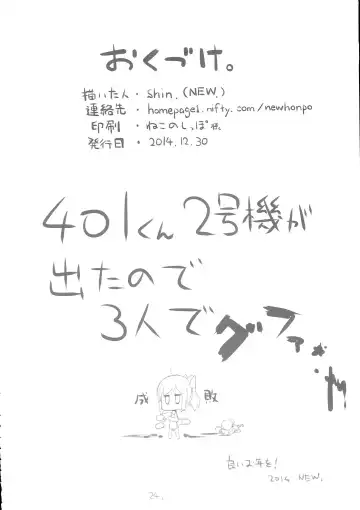 おくづけ。
描いた人・Shin.(NEW.)
連絡先・homepage1.nifty.com/newhonpo
印刷・ねこのしっぽ様。
発行日・2014.12.30
401くん2号機が
出たので
3人でグファ
成敗
良いお年を!
2014 NEW.
24.